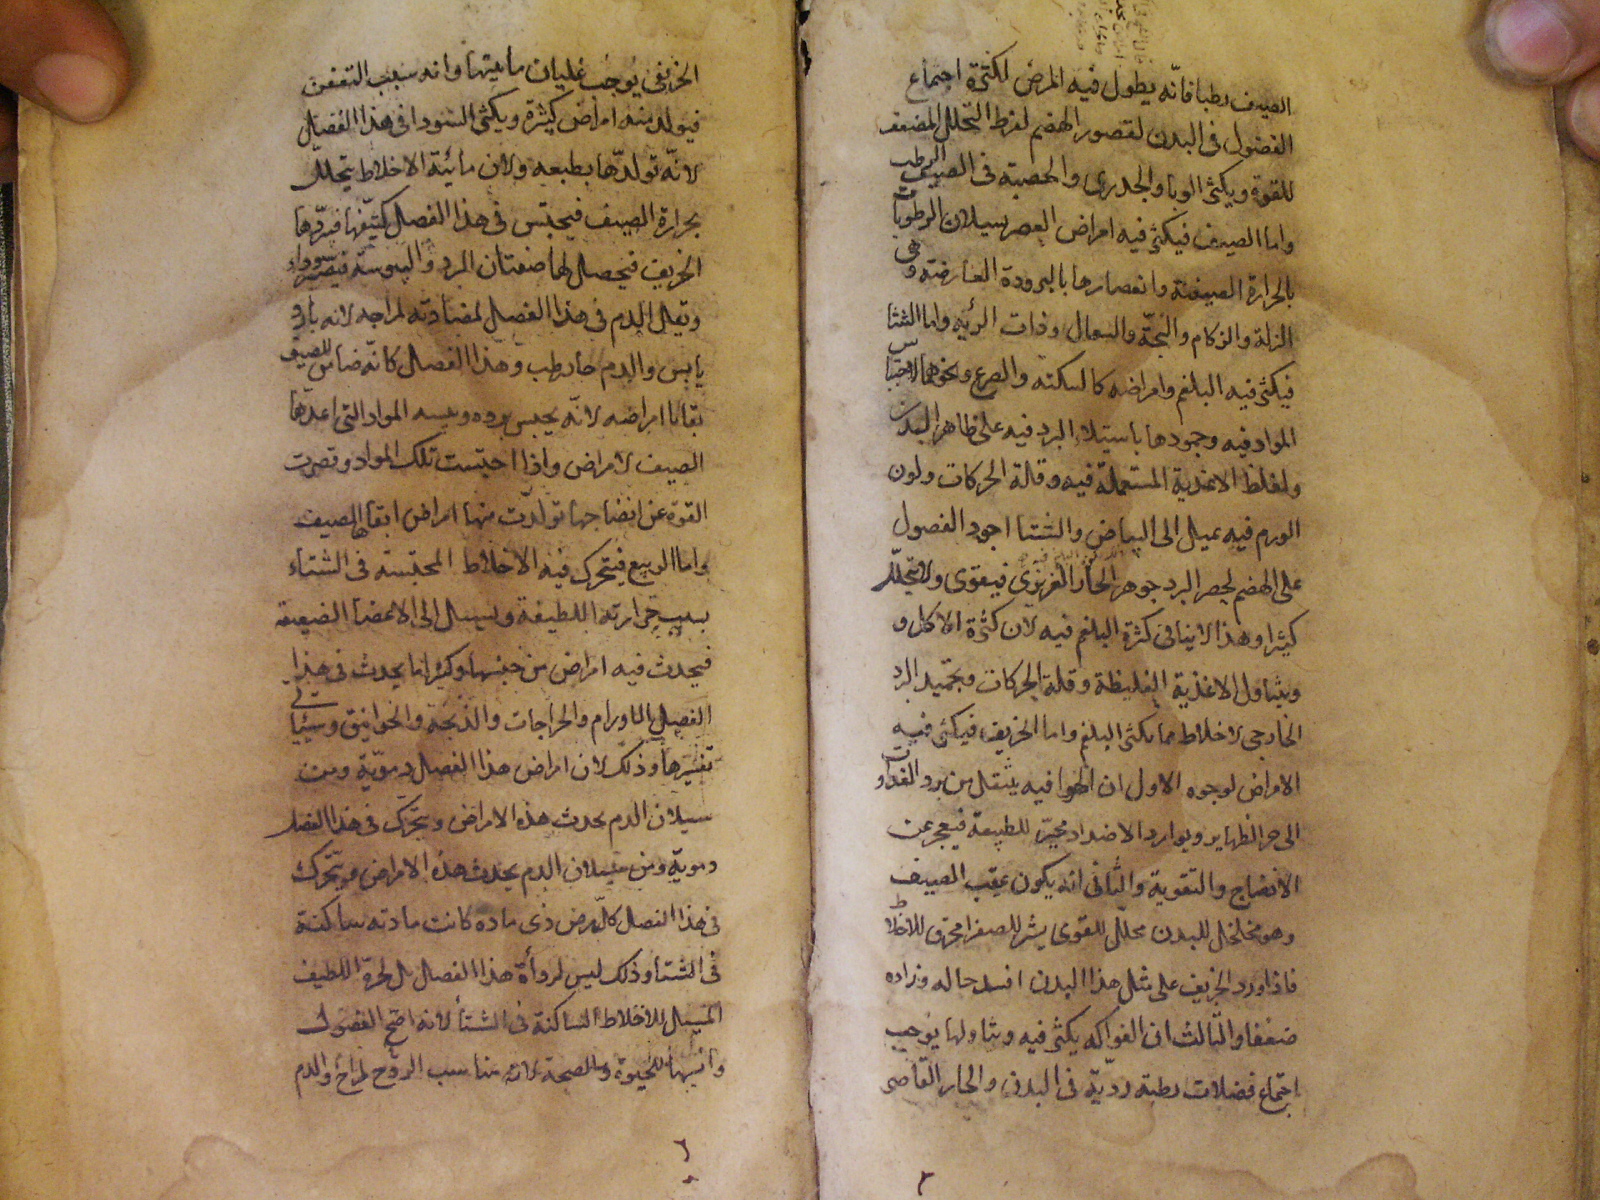 الصيف رطبا فانّه يطول فيه المرض لكثرة اجتماع
الفضول فى البدن لقصور الهضم لفرط التحلل المضعف
للقوة ويكثر الوبا والجدرى والحصبة فى الصيف الرطب
واما الصيف فيكثر فيه امراض العصر سيلان الرطوبات
بالحرارة الصيفية وانعصارها بالبرودة العارضة وهى
النزلة والزكام والبحّة والسعال وذات الرئه واما الشتا
فيكثر فيه البلغم وامراضه كالسكته والصرع ونحوهما لاحتباس
المواد فيه وجمودها باستيلاء البرد فيه على ظاهر البدن
ولغلظ الاغذية المستعملة فيه وقلة الحركات ولون
الورم فيه يميل الى البياض والشتا اجود الفصول
على الهضم لحصر البرد جوهر الحار الغريزى فيقوى ولا يتحلّل
كثيرا وهذا لاينافى كثرة البلغم فيه لان كثرة الاكل و
وبتناول الاغذية الغليظة وقلة الحركات وبتجميد البرد
الخارجى لاخلاط مما يكثر البلغم واما الخريف فيكثر فيه
الامراض لوجوه الاول ان الهوا فيه ينتقل من برد الغدوات
الى حر الظهاير وتوارد الاضداد محيّر للطبيعة فيعجز عن
الانضاج والتقوية والثانى انه يكون عقب الصيف
وهو مخلخل للبدن محلّل للقوى يثير للصفرا محرق للاخلاط
فاذا ورد الخريف على مثل هذا البدن افسد حاله وزاده
ضعفا والثالث ان الفواكه يكثر فيه وتناولها يوجب
اجتماع فضلات رطبة رديّة فى البدن والحار القاصى
٢
الخريفى يوجب غليان مائيتها وانه سبب التعفن
فيولد منه امراض كثيرة ويكثر السودا فى هذا الفصل
لانّه تولدّها بطبعه ولان مائيّة الاخلاط يتحلل
بحرارة الصيف فيحتبس فى هذا الفصل كثيفها فبردّها
الخريف فيحصل لها صفتان البرد واليبوسة فيصير سوداء
ويقلل الدم فى هذا الفصل لمضادته لمزاجه لانه بارد
يابس والدم حار رطب وهذا الفصل كانّه ضامن للصيف
بقايا امراضه لانّه يحبس برده ويبسه المواد التى اعدّها
الصيف لامراض واذا احتبست تلك المواد وقصرت
القوة عن انضاجها تولدّت منها امراض ابقاها الصيف
واما الربيع فيتحرك فيه الاخلاط المحتبسه فى الشتاء
بسبب حرارته اللطيفة ويسيل الى الاعضا الضعيفة
فيحدث فيه امراض من جنسها وكثيرا ما يحدث فى هذا
الفصل الاورام والخراجات والذبحة والخوانيق وسيئاتى
تفسيرها وذلك لان امراض هذا الفصل دمويّة ومن
سيلان الدم يحدث هذه الامراض ويتحرّك فى هذا الفصل
دموية ومن سيلان الدم يحدث هذه الامراض ويتحرّك
فى هذا الفصل كلّ مرض ذى ماده كانت مادته ساكنة
فى الشتا وذلك ليس لرداءة هذا الفصل بل لحرّه اللطيف
المسيل للاخلاط الساكنة فى الشتا لانه اصح الفصول
وانسبها للحيوة والصحة لانه مناسب الروح لمزاج والدم
٦